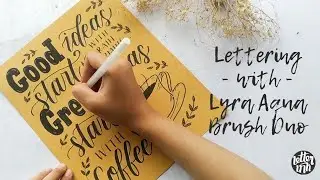 Good ideas
start
WITH
Great
start
WITH
Coffee
Lettering
- with -
Lyra Aqua
Brush Duo
letter
ink